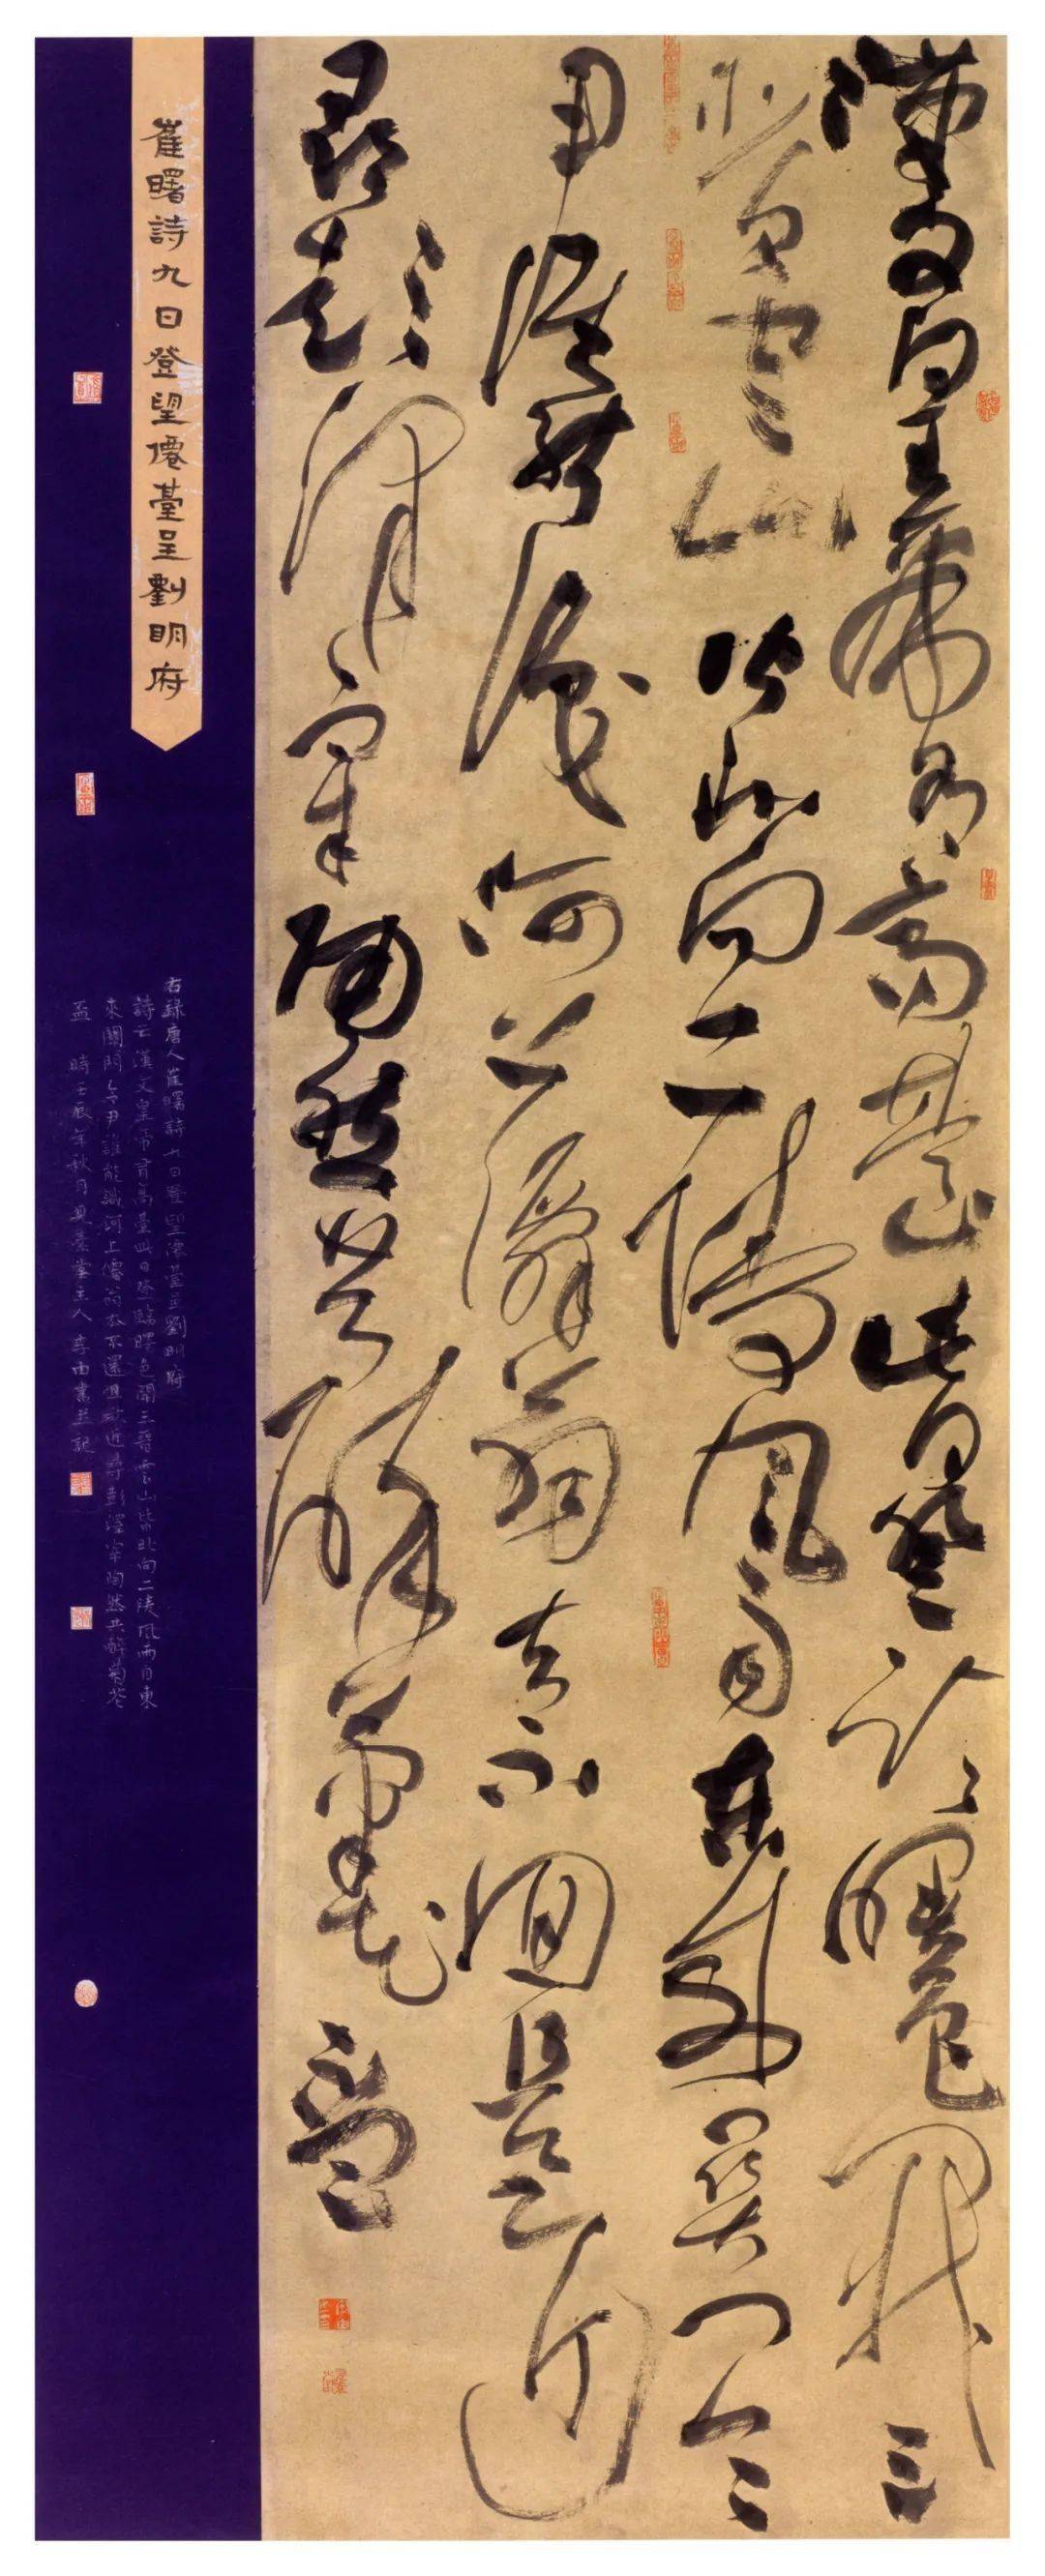 漢文皇帝有高臺此日登臨曙色開三
晉雲山皆北向二陵風雨自東來關門令
尹誰能識河上僊翁去不迴且欲近
尋彭澤宰陶然共醉菊花盃
崔曙詩九日登望僊臺呈劉明府
右錄唐人崔曙詩九日登望僊臺呈劉明府
詩云漢文皇帝有高臺此日登臨曙色開三晉雲山皆北向二陵風雨自東
來關門令尹誰能識河上僊翁去不還且欲近尋彭澤宰陶然共醉菊花
盃 時壬辰年秋月 主人李由書並記